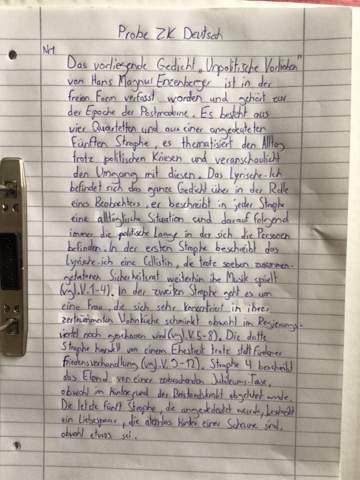 Probe ZK Deutsch
Nr1
Das vorliegende Gedicht „Unpolitische Vorlieben"
von Hans Magnus Enzenberger ist in der
freien Form verfasst worden und gehört zur
der Epoche der Postmoderne. Es besteht aus
vier Quartetten und aus einer angedeuteten
Fünften Strophe, es thematisiert den Alltag
trotz politischen Kriesen und veranschaulicht
den Umgang mit diesen. Das Lyrische-Ich
befindet sich das ganze Gedicht über in der Rolle
eines Beobachters, er beschreibt in jeder Strophe
eine alltägliche Situation und darauf folgend
immer die politische Lage in der sich die Personen
befinden. In der ersten Strophe beschreibt das
Lyrische-ich eine Cellistin, die trotz soeben zusammen-
getretenen Sicherheitsrat weiterhin ihre Musik spielt
(vgl. V. 1-4). In der zweiten Strophe geht es um
eine Frau, die sich sehr konzentriert in ihrer
Wohnküche schminkt obwohl im Regierungs-
viertel noch geschossen wird (vgl. V. 5-8). Die dritte
Strophe handelt von einem Ehestreit trotz
Friedensverhandlung (vgl. V. 9-12). Strophe 4 beschreibt
das Elend von einer zerbrochenen Jubiläums-Tasse,
obwohl im Hintergrund der abgelehnt wurde.
Die letzte fünft Strophe, die angedeutet wurde, beschreibt
ein Liebespaar, die atemlos hinter einer Scheune sind,
obwohl etwas sei.